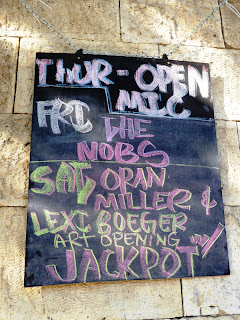 THUR - OPEN
MIC
FRI THE
NOBS
SAT ORAN
MILLER &
LEXI BOEGER
ART OPENING
W/
JACKPOT